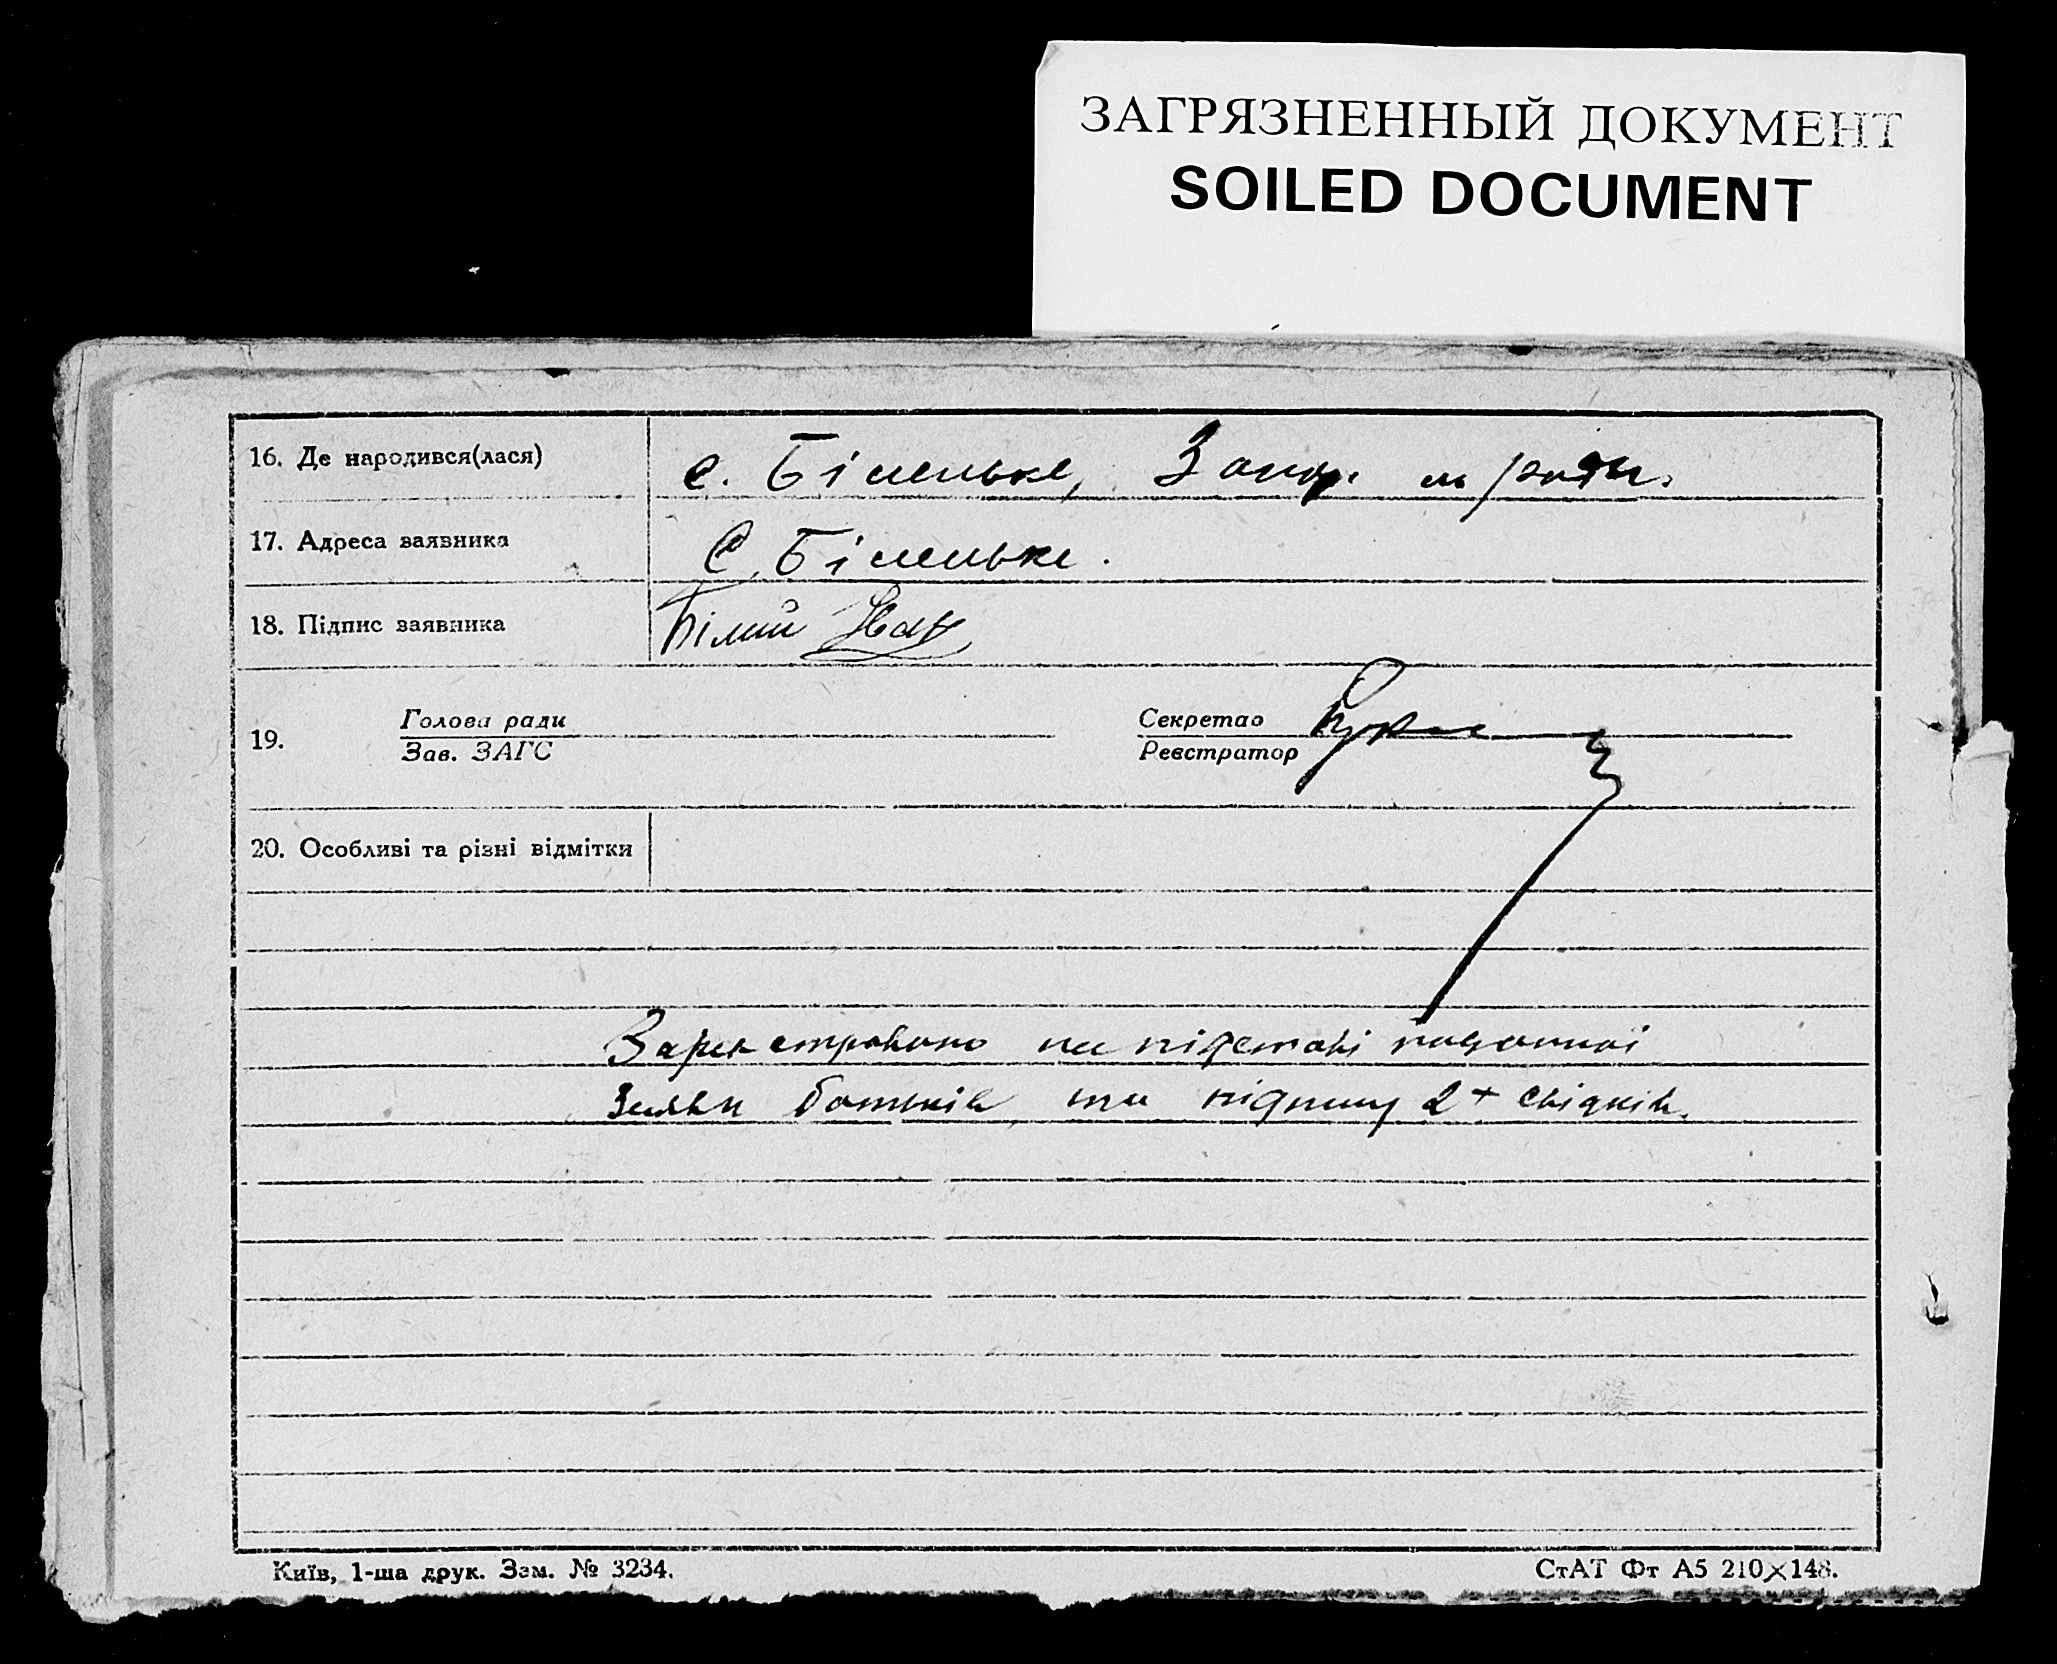 ЗАГРЯЗНЕННЫЙ ДОКУМЕНТ
SOILED DOCUMENT
16. Де народився(лася) с. Біленьке, Запор.
17. Адреса заявника С. Біленьке.
18. Підпис заявника Білий Іван
19. Голова ради Секретар
Зав. ЗАГС Реєстратор
20. Особливі та різні відмітки
Зареєстровано на підставі
Заяви батьків та підпису 2х свідків.
Київ, 1-ша друк. Зам. № 3234.
СтАТ Фт А5 210×148.